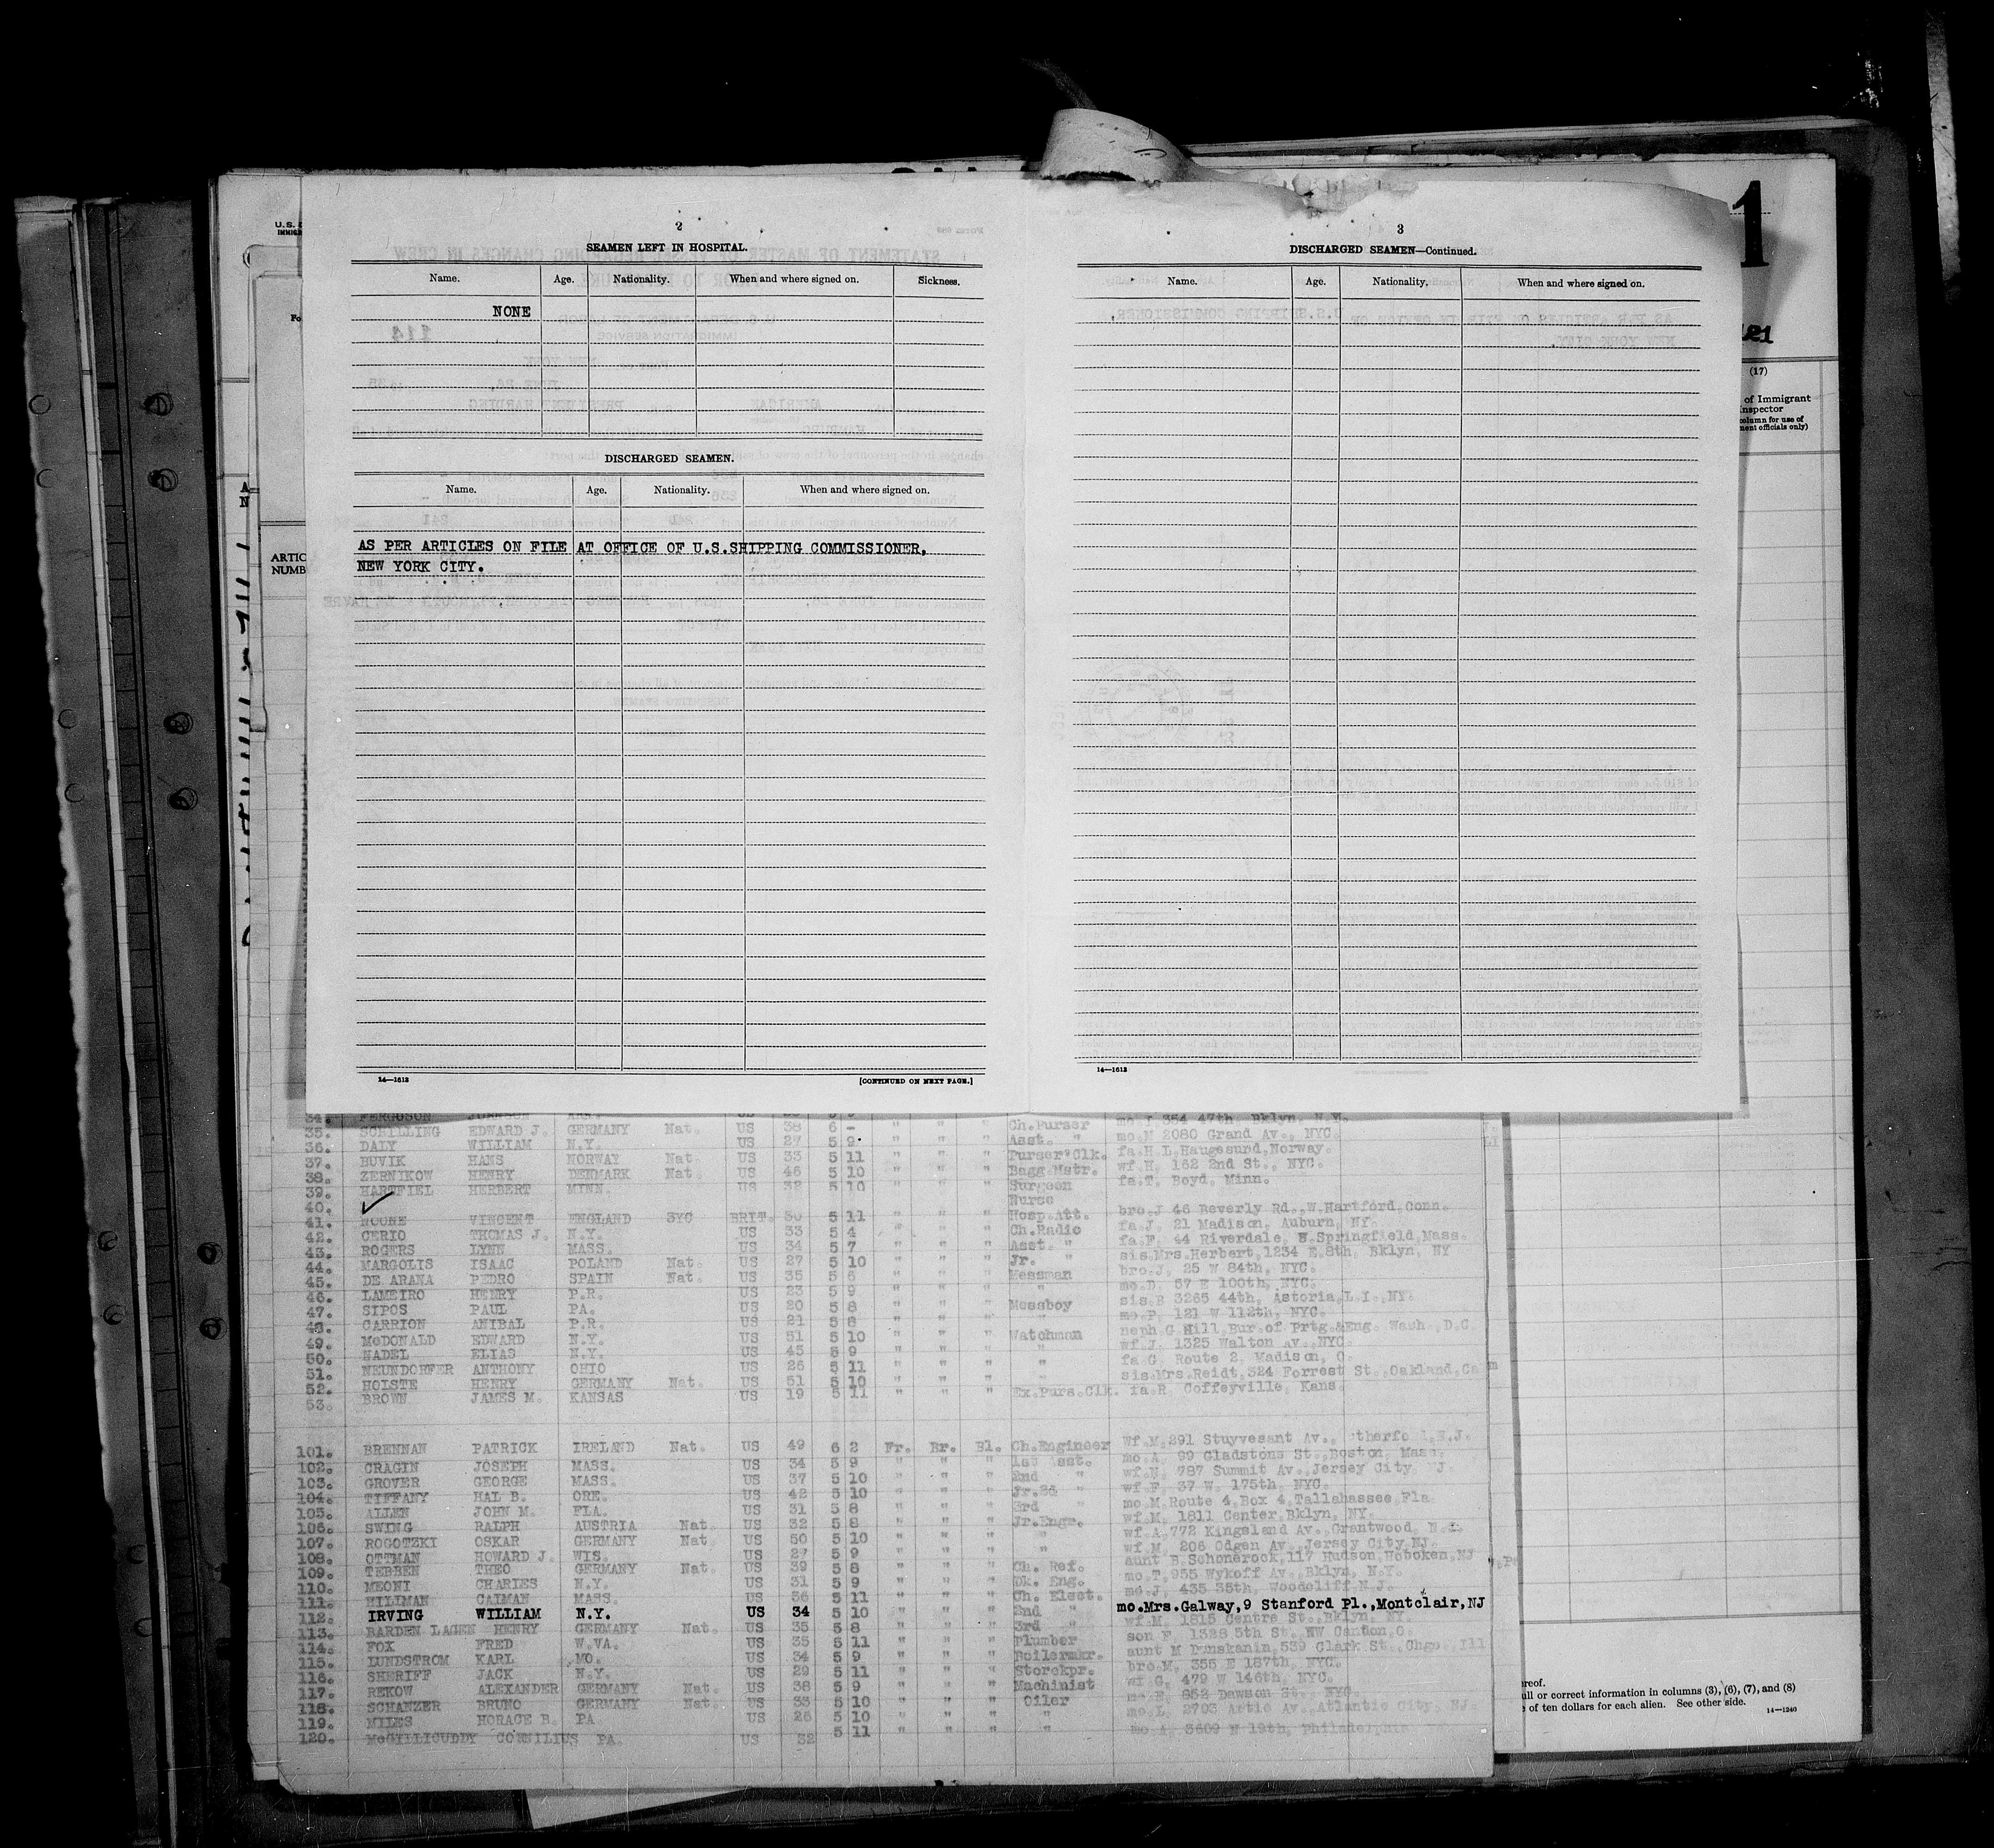 1
U.S.
2
SEAMEN LEFT IN HOSPITAL.
Name. Age. Nationality. When and where signed on. Sickness.
NONE
DISCHARGED SEAMEN.
Name. Age. Nationality. When and where signed on.
AS PER ARTICLES ON FILE AT OFFICE OF U.S.SHIPPING COMMISSIONER,
NEW YORK CITY.
14—1613
[CONTINUED ON NEXT PAGE.]
3
DISCHARGED SEAMEN—Continued.
Name. Age. Nationality. When and where signed on.
14—1613
(17)
of Immigrant
nspector
column for use of
ment officials only)
ARTIC
NUMB
35. SCHILLING EDWARD J. GERMANY Nat. US 38 6 - " " " Ch.Purser
36. DALY WILLIAM N.Y. US 27 5 9 " " " Asst. " mo.M 2080 Grand Av., NYC.
37. BUVIK HANS NORWAY Nat. US 33 5 11 " " " Purser's Clk. fa.H L,Haugesund,Norway.
38. ZERNIKOW HENRY DENMARK Nat. US 46 5 10 " " " Bagg.Mstr. wf.H, 162 2nd St., NYC.
39. HARTFIEL HERBERT MINN. US 32 5 10 " " " Surgeon fa.T, Boyd, Minn.
40. Nurse
41. NOONE VINCENT ENGLAND SYC BRIT. 30 5 11 " " " Hosp.Att. bro.J 46 Beverly Rd.,W.Hartford,Conn.
42. CERIO THOMAS J. N.Y. US 33 5 4 " " " Ch.Radio fa.J. 21 Madison, Auburn, NY.
43. ROGERS LYNN MASS. US 34 5 7 " " " Asst. " fa.F. 44 Riverdale, W.Springfield,Mass.
44. MARGOLIS ISAAC POLAND Nat. US 27 5 10 " " " Jr. " sis.Mrs.Herbert,1234 E.8th, Bklyn, NY
45. DE ARANA PEDRO SPAIN Nat. US 35 5 6 " " " Messman bro.J, 25 W 84th, NYC.
46. LAMEIRO HENRY P.R. US 23 5 9 " " " " mo.D. 57 E 100th, NYC.
47. SIPOS PAUL PA. US 20 5 8 " " " Messboy sis.B 3265 44th, Astoria,L.I.,NY
48. CARRION ANIBAL P.R. US 21 5 8 " " " " mo.P, 121 W 112th, NYC.
49. McDONALD EDWARD N.Y. US 51 5 10 " " " Watchman neph G Hill,Bur.of Prtg.&Eng. Wash. D.C.
50. NADEL ELIAS N.Y. US 45 5 9 " " " " wf.J. 1325 Walton Av.,NYC
51. NEUNDORFER ANTHONY OHIO US 26 5 11 " " " " fa.G. Route 2, Madison, O.
52. HOLSTE HENRY GERMANY Nat. US 51 5 10 " " " " sis.Mrs.Reidt,324 Forrest St.,Oakland,Ca
53. BROWN JAMES M. KANSAS US 19 5 11 " " " Ex.Purs.Clk. fa.R. Coffeyville, Kans.
101. BRENNAN PATRICK IRELAND Nat. US 49 6 2 Fr. Br. Bl. Ch.Engineer wf.M,291 Stuyvesant Av.,
102. CRAGIN JOSEPH MASS. US 34 5 9 " " " 1st Asst. mo.A. 99 Gladstons St.,Boston, Mass.
103. GROVER GEORGE MASS. US 37 5 10 " " " 2nd " wf.N. 787 Summit Av.,Jersey City NJ
104. TIFFANY HAL B. ORE. US 42 5 10 " " " Jr.2d " wf.F. 37 W. 175th, NYC.
105. ALLEN JOHN M. FLA. US 31 5 8 " " " 3rd " mo.M,Route 4,Box 4,Tallahassee,Fla.
106. SWING RALPH AUSTRIA Nat. US 32 5 8 " " " Jr.Engr. wf.M. 1811 Center,Bklyn, NY.
107. ROGOTZKI OSKAR GERMANY Nat. US 50 5 10 " " " " wf.A,772 Kingsland Av.,Grantwood, N.J.
108. OTTMAN HOWARD J. WIS. US 27 5 9 " " " " wf.M. 206 Odgen Av.,Jersey City,NJ.
109. TEBBEN THEO GERMANY Nat. US 39 5 8 " " " Ch. Ref. aunt B.Schonerock,117 Hudson,Hoboken,NJ
110. MEONI CHARLES N.Y. US 31 5 9 " " " Dk. Eng. mo.T,955 Wykoff Av.,Bklyn, N.Y.
111. HILLMAN CALMAN MASS. US 36 5 11 " " " Ch. Elect. mo.J, 435 35th, Woodcliff,N.J.
112. IRVING WILLIAM N.Y. US 34 5 10 " " " 2nd " mo.Mrs.Galway,9 Stanford Pl.,Montclair,NJ
113. BARDEN LAGEN HENRY GERMANY Nat. US 35 5 8 " " " 3rd " wf.M. 1815 Centre St.,Bklyn, NY.
114. FOX FRED W.VA. US 35 5 11 " " " Plumber son F. 1328 5th St., NW Canton,O.
115. LUNDSTROM KARL MO. US 34 5 9 " " " Boilermkr. aunt M 539 Clark St.,Chgo.,Ill
116. SHERIFF JACK N.Y. US 29 5 11 " " " Storekpr. bro.M, 355 E 187th, NYC.
117. REKOW ALEXANDER GERMANY Nat. US 38 5 9 " " " Machinist wf.G, 479 W 146th, NYC.
118. SCHANZER BRUNO GERMANY Nat. US 33 5 10 " " " Oiler mo.E. 852 Dawson St., NYC.
119. MILES HORACE B. PA US 26 5 10 " " " " mo.L. 2703 Artic Av.,Atlantic City, NJ.
120. McGILLICUDDY CORNILIUS PA. US 32 5 11 " " " " mo.A. 3609 N 19th, Philadelphia
ereof.
ull or correct information in columns (3), (6), (7), and (8)
e of ten dollars for each alien. See other side.
14—1240